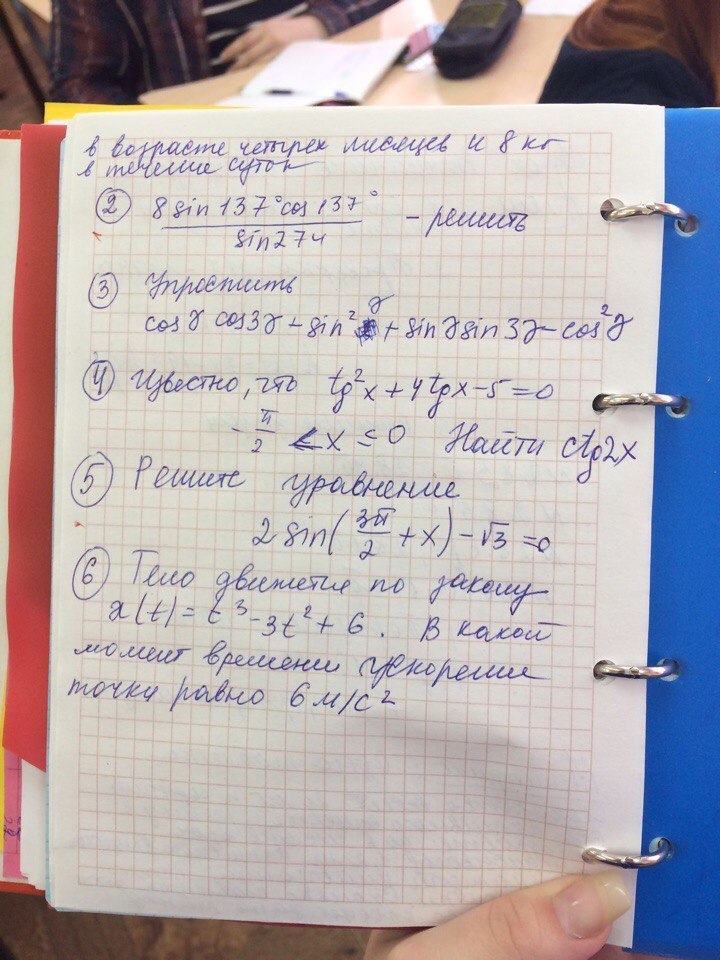 в возрасте четырех месяцев и 8 кг
в течение суток
② 8 sin 137° cos 137° / sin 274 – решить
③ Упростить
cos γ cos 3γ – sin² γ + sin γ sin 3γ – cos² γ
④ Известно, что tg²x + 4tgx – 5 = 0
-π/2 < x ≤ 0 Найти ctg2x
⑤ Решите уравнение
2 sin(3π/2 + x) – √3 = 0
⑥ Тело движется по закону
x(t) = t³ - 3t² + 6. В какой
момент времени ускорение
точки равно 6 м/с²